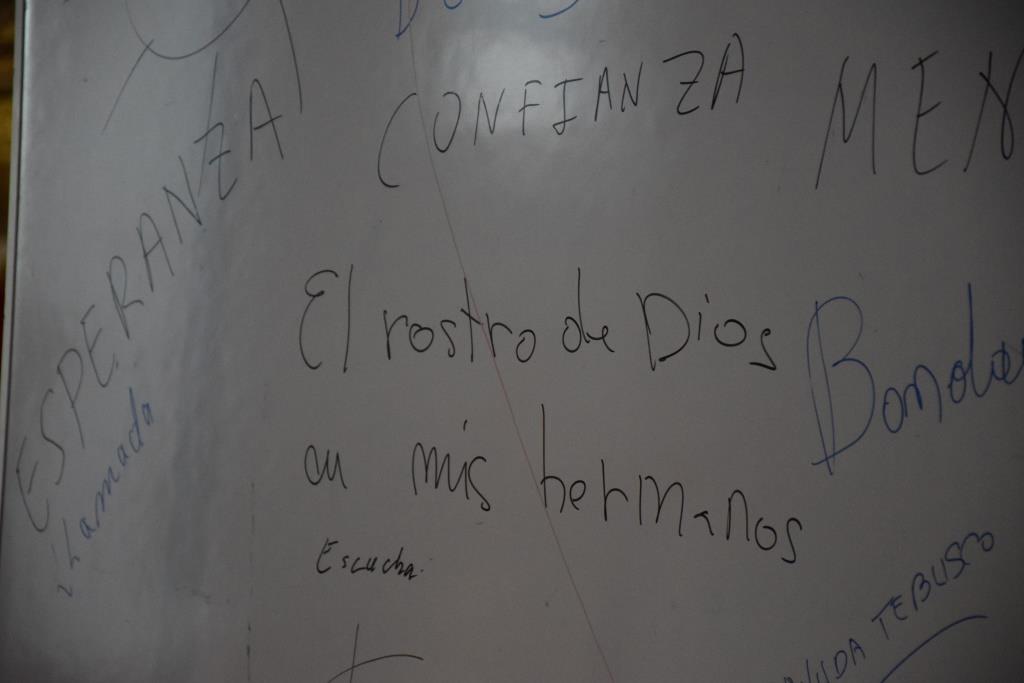 CONFIANZA
ESPERANZA
El rostro de Dios
en mis hermanos
Llamada
Escucha
TE BUSCO